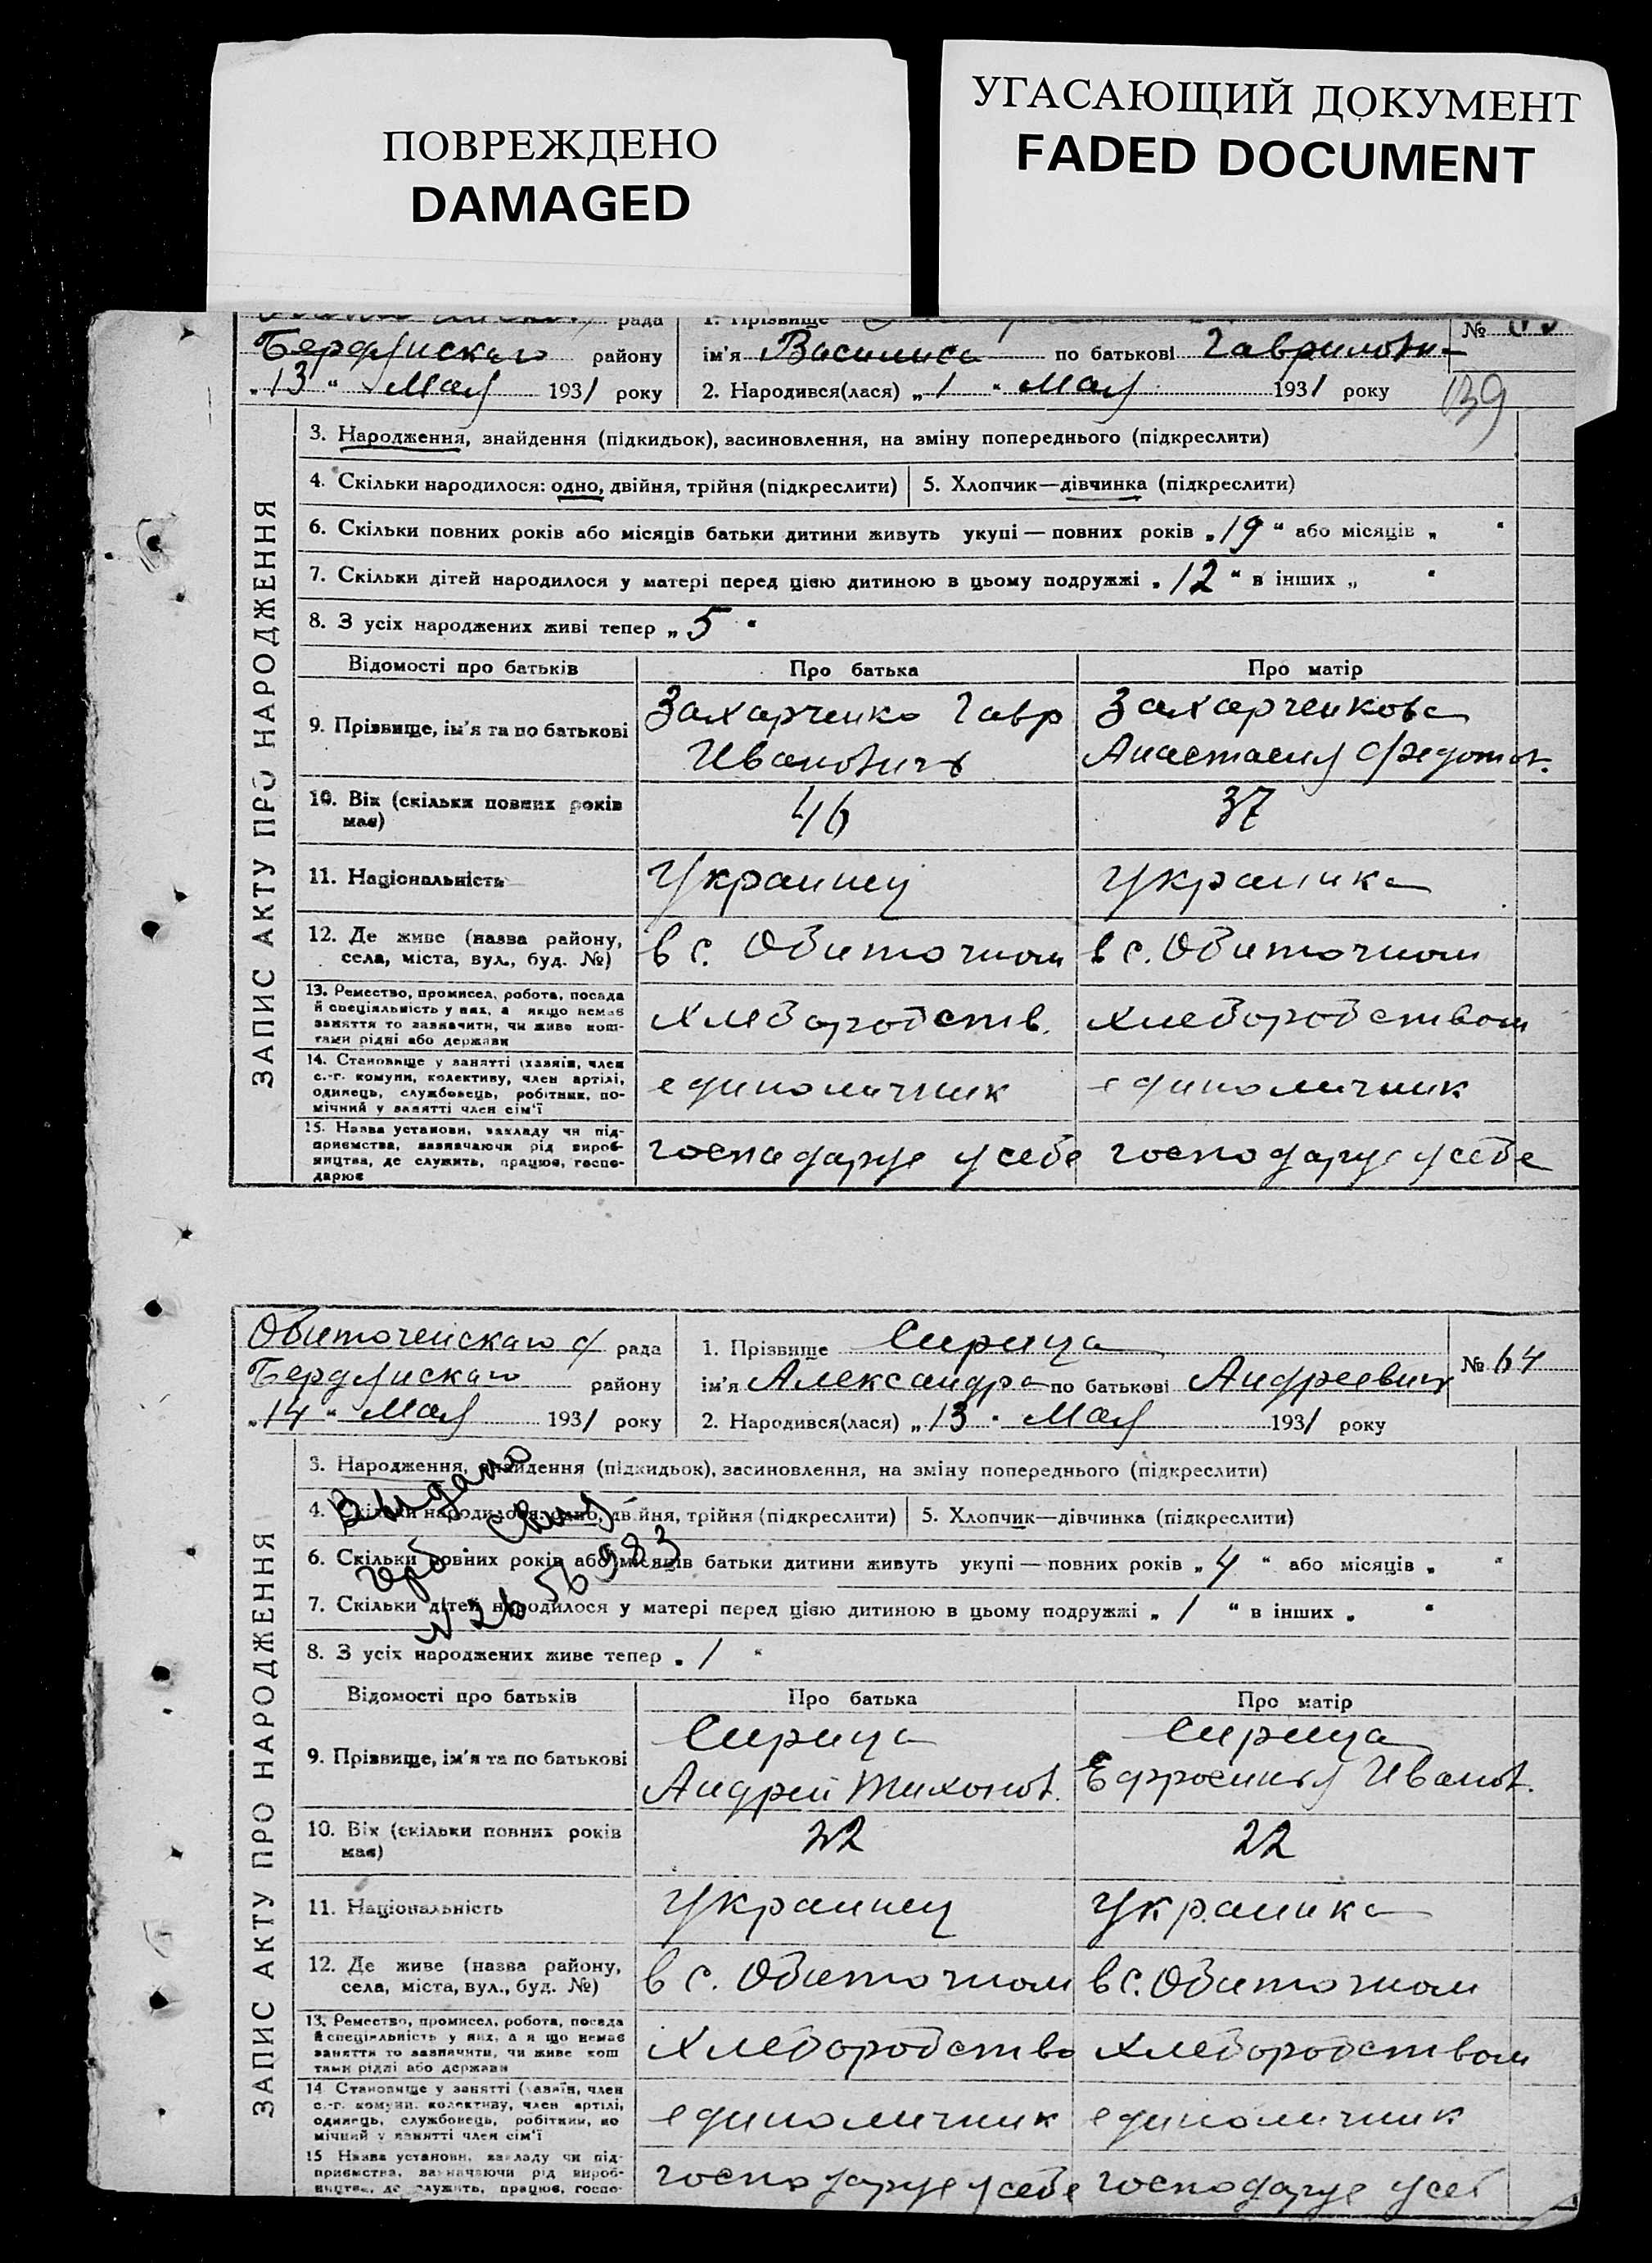 ПОВРЕЖДЕНО
DAMAGED
УГАСАЮЩИЙ ДОКУМЕНТ
FADED DOCUMENT
рада
1. Прізвище
№
Бердянскаго району
ім'я Василиса по батькові Гаврилови-
„13“ Мая 1931 року
2. Народився(лася) „1“ Мая 1931 року
139
ЗАПИС АКТУ ПРО НАРОДЖЕННЯ
3. Народження, знайдення (підкидьок), засиновлення, на зміну попереднього (підкреслити)
4. Скільки народилося: одно, двійня, трійня (підкреслити)
5. Хлопчик—дівчинка (підкреслити)
6. Скільки повних років або місяців батьки дитини живуть укупі — повних років „19“ або місяців „ “
7. Скільки дітей народилося у матері перед цією дитиною в цьому подружжі „12“ в інших „ “
8. З усіх народжених живі тепер „5“
Відомості про батьків
Про батька
Про матір
9. Прізвище, ім'я та по батькові
Захарченко Гавр
Ивановичъ
Захарченкова
Анастасия Федотов.
10. Вік (скільки повних років
має)
46
37
11. Національність
Украинец
Украинка
12. Де живе (назва району,
села, міста, вул., буд. №)
в с. Обиточном
в с. Обиточном
13. Ремество, промисел, робота, посада
й спеціяльність у них, а якщо немає
заняття то зазначити, чи живе кош-
тами рідні або держави
хлебородств.
хлебородством
14. Становище у занятті (хазяїн, член
с.-г. комуни, колективу, член артілі,
одинець, службовець, робітник, по-
мічний у занятті член сім'ї
единоличник
единоличник
15. Назва установи, закладу чи під-
приємства, зазначаючи рід вироб-
ництва, де служить, працює, госпо-
дарює
господарує у себе
господарує у себе
Обиточенскаго с/ рада
1. Прізвище Сирица
№ 64
Бердянскаго району
ім'я Александр по батькові Андреевич
„14“ Мая 1931 року
2. Народився(лася) „13“ Мая 1931 року
ЗАПИС АКТУ ПРО НАРОДЖЕННЯ
3. Народження, знайдення (підкидьок), засиновлення, на зміну попереднього (підкреслити)
4. Скільки народилося: одно, двійня, трійня (підкреслити)
5. Хлопчик—дівчинка (підкреслити)
6. Скільки повних років або місяців батьки дитини живуть укупі — повних років „4“ або місяців „ “
7. Скільки дітей народилося у матері перед цією дитиною в цьому подружжі „1“ в інших „ “
8. З усіх народжених живе тепер „1“
Выдано
Відомості про батьків
Про батька
Про матір
9. Прізвище, ім'я та по батькові
Сирица
Андрей Тихонов.
Сирица
Ефросиния Иванов.
10. Вік (скільки повних років
має)
22
22
11. Національність
Украинец
Украинка
12. Де живе (назва району,
села, міста, вул., буд. №)
в с. Обиточном
в с. Обиточном
13. Ремество, промисел, робота, посада
й спеціяльність у них, а я що немає
заняття то зазначити, чи живе кош
тами рідні або держави
Хлебородство
хлебородством
14 Становище у занятті (хазяїн, член
с.-г. комуни, колективу, член артілі,
одинець, службовець, робітник, по
мічний у занятті член сім'ї
единоличник
единоличник
15 Назва установи, закладу чи під-
приємства, зазначаючи рід вироб-
ництва, де служить, працює, госпо-
господарує у себе
господарує у себ